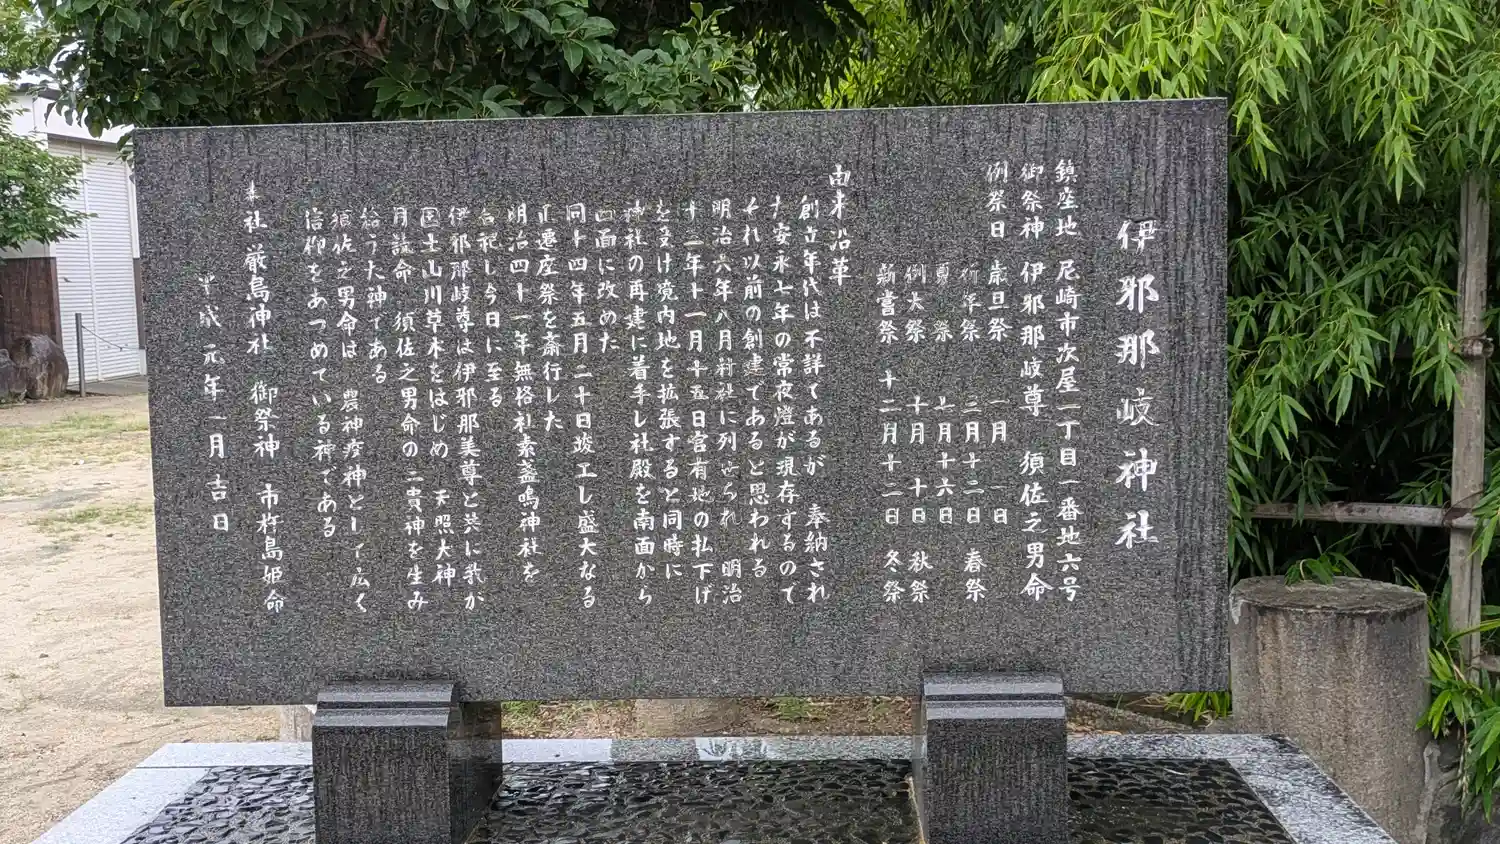 伊邪那岐神社
鎮座地 尼崎市次屋一丁目一番地六号
御祭神 伊邪那岐尊 須佐之男命
例祭日 歳旦祭 一月 一日
祈年祭 三月十二日 春祭
夏祭 七月十六日
例大祭 十月 十日 秋祭
新嘗祭 十二月十二日 冬祭
由来沿革
創立年代は不詳であるが 奉納され
た安永七年の常夜燈が現存するので
それ以前の創建であると思われる
明治六年八月村社に列せられ 明治
十二年十一月十五日官有地の払下げ
を受け境内地を拡張すると同時に
神社の再建に着手し社殿を南面から
西面に改めた
同十四年五月二十日竣工し盛大なる
正遷座祭を斎行した
明治四十一年無格社素盞嗚神社を
合祀し今日に至る
伊邪那岐尊は伊邪那美尊と共に我が
国土山川草木をはじめ 天照大神
月読命 須佐之男命の三貴神を生み
給うた大神である
須佐之男命は 農神疫神として広く
信仰をあつめている神である
末社 厳島神社 御祭神 市杵島姫命
平成元年一月吉日